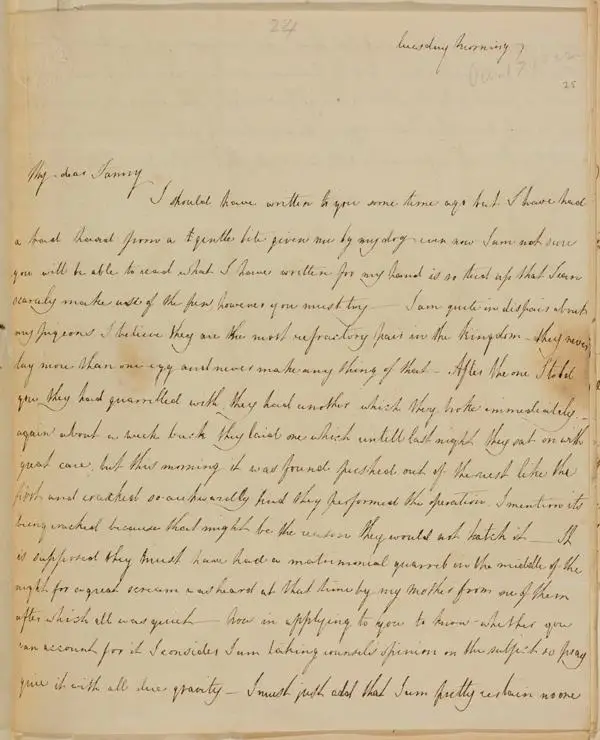 24
Tuesday Morning
25
My dear Fanny
I should have written to you some time ago but I have had
a bad hand from a gentle bite given me by my dog even now I am not sure
you will be able to read what I have written for my hand is so tied up that I can
scarcely make use of the pen however you must try — I am quite in despair about
my pigeons I believe they are the most refractory pair in the Kingdom — they never
lay more than one egg and never make any thing of that — After the one I told
you they had quarrelled with, they had another which they broke immediately —
again about a week back they laid one which untill last night they sat on with
great care, but this morning it was found pushed out of the nest like the
first and cracked so awkwardly had they performed the operation. I mention its
being cracked because that might be the reason they would not hatch it — It
is supposed they must have had a matrimonial quarrel in the middle of the
night for a great scream was heard at that time by my mother from one of them
after which all was quiet — Now in applying to you to know whether you
can account for it I consider I am taking counsels opinion on the subject so pray
give it with all due gravity — I must just add that I am pretty certain no one